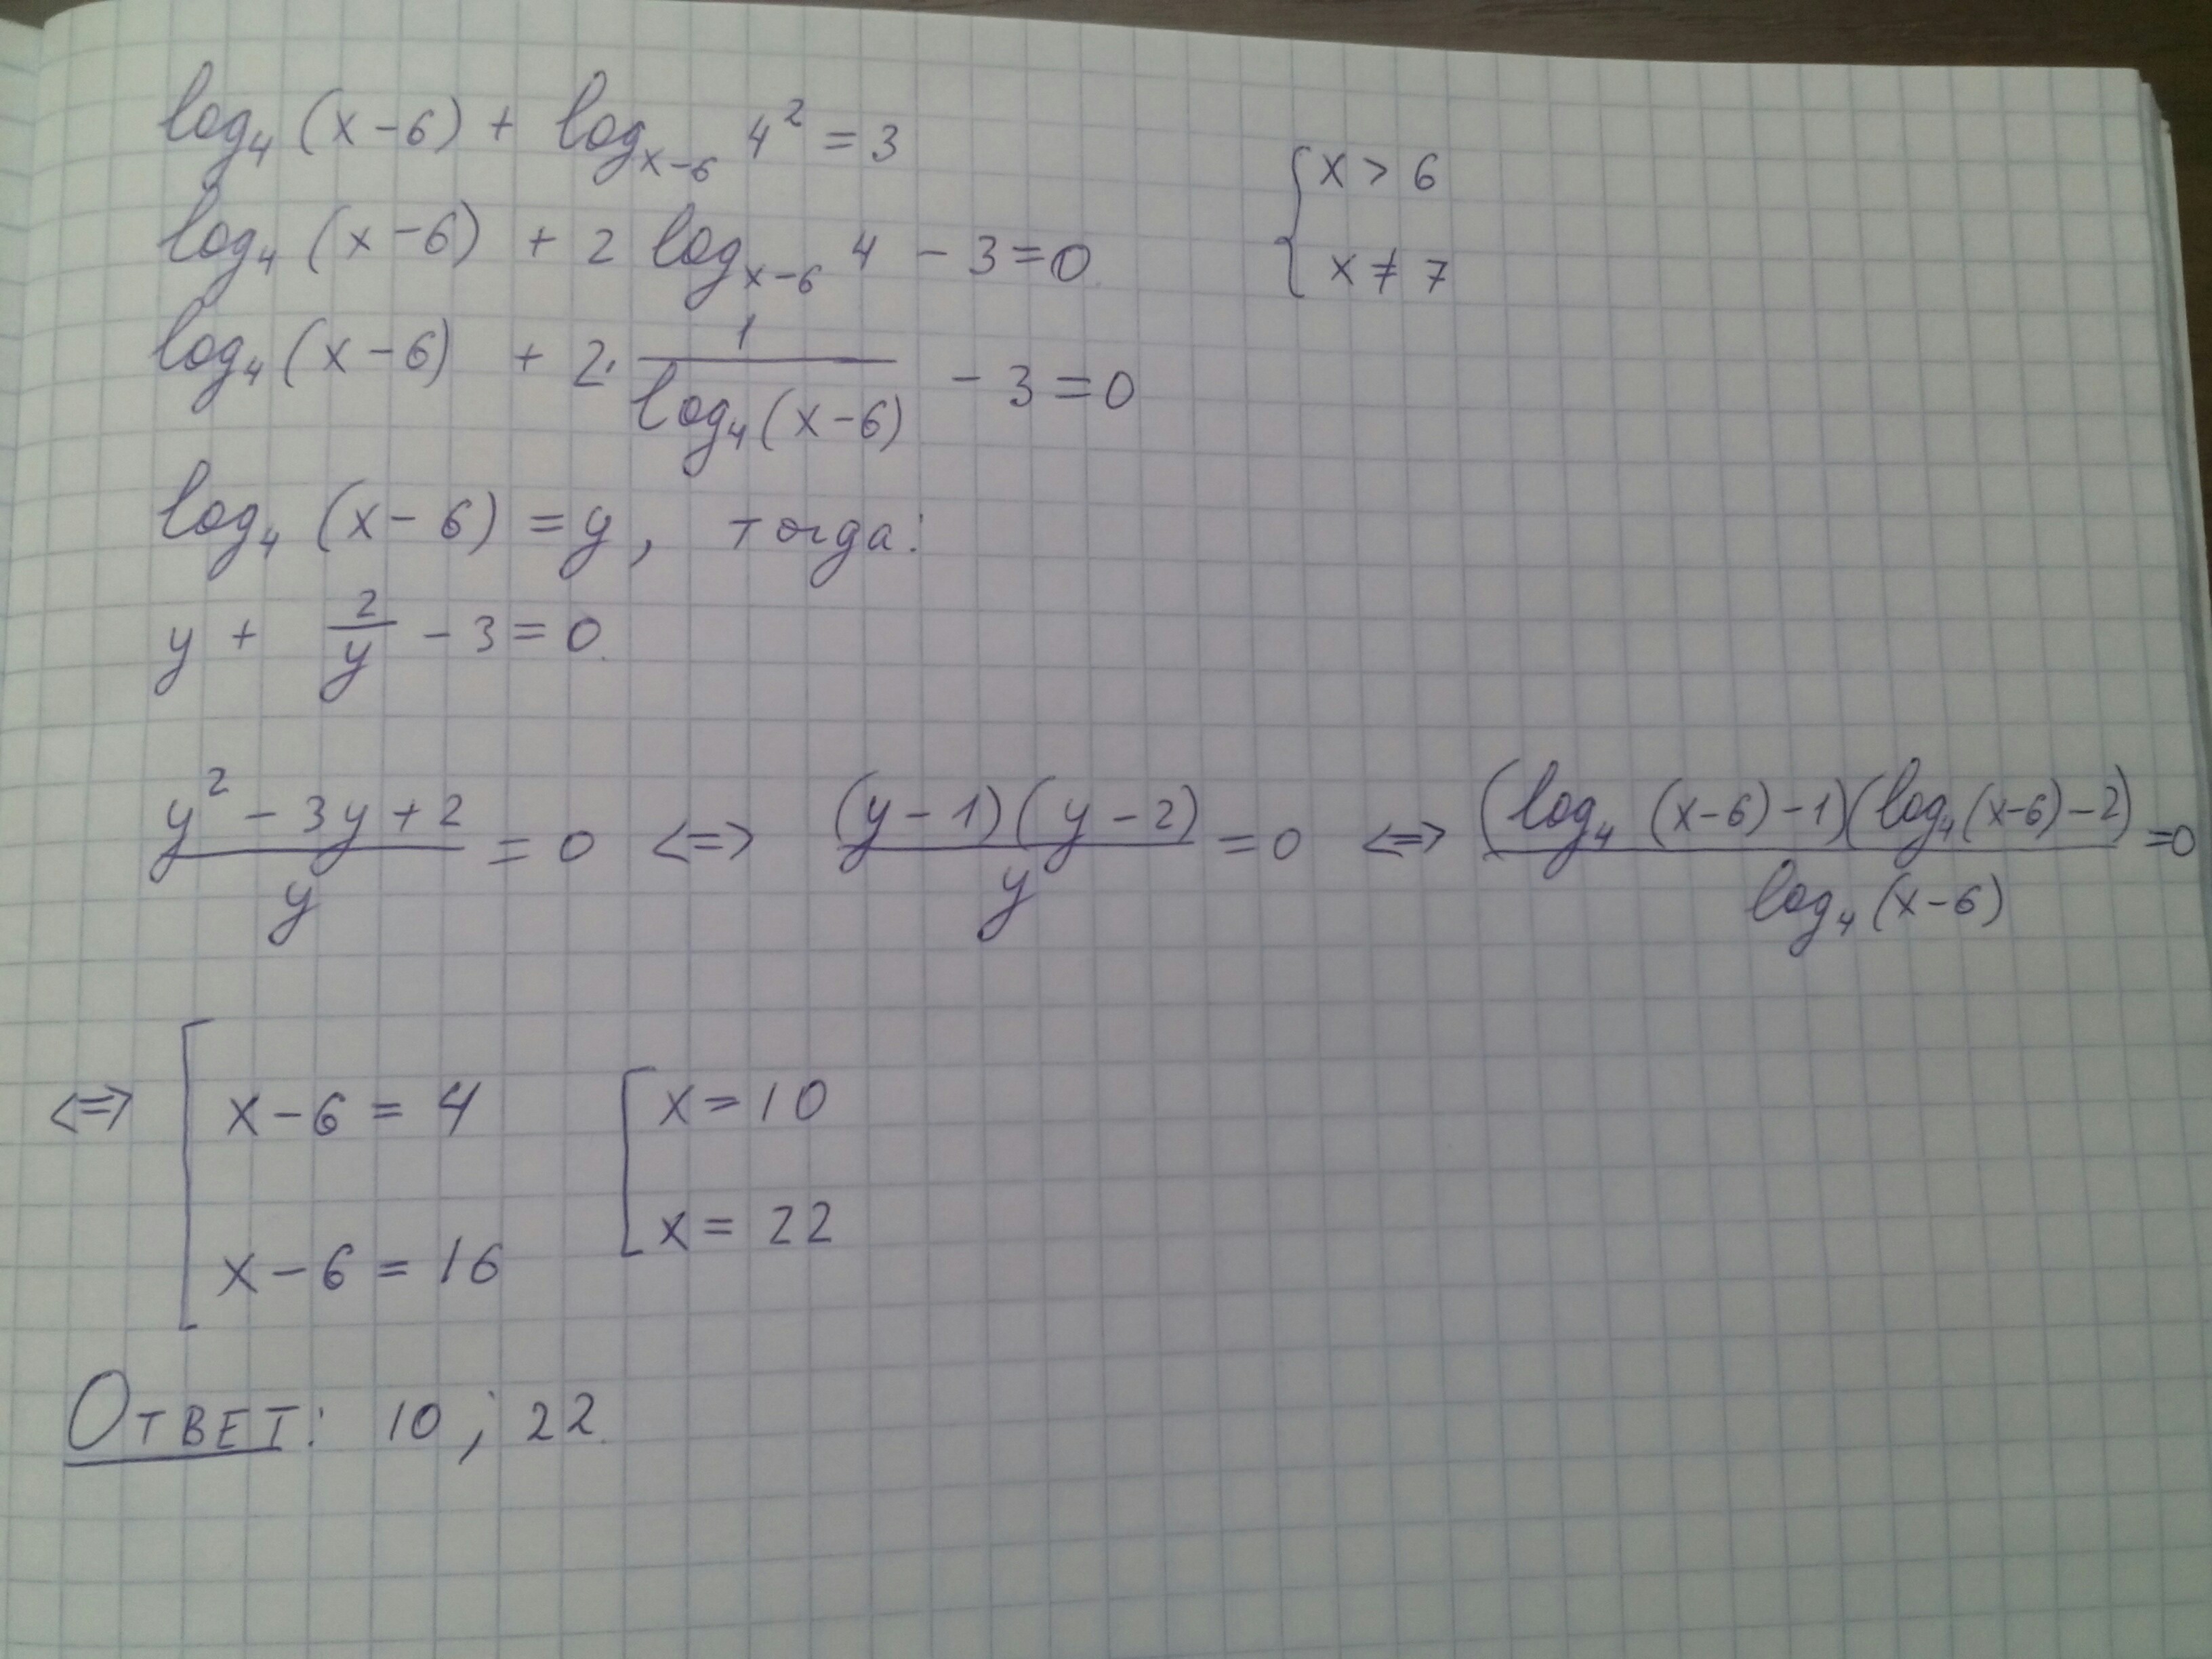 log₄ (x-6) + logₓ₋₆ 4² = 3
{ x > 6
x ≠ 7
log₄ (x-6) + 2 logₓ₋₆ 4 - 3 = 0
log₄ (x-6) + 2 · 1/(log₄ (x-6)) - 3 = 0
log₄ (x-6) = y, тогда:
y + 2/y - 3 = 0
(y² - 3y + 2)/y = 0 <=> ((y-1)(y-2))/y = 0 <=> ((log₄ (x-6) - 1)(log₄ (x-6) - 2))/(log₄ (x-6)) = 0
<=> [ x-6 = 4 [ x = 10
x-6 = 16 x = 22
Ответ: 10; 22.